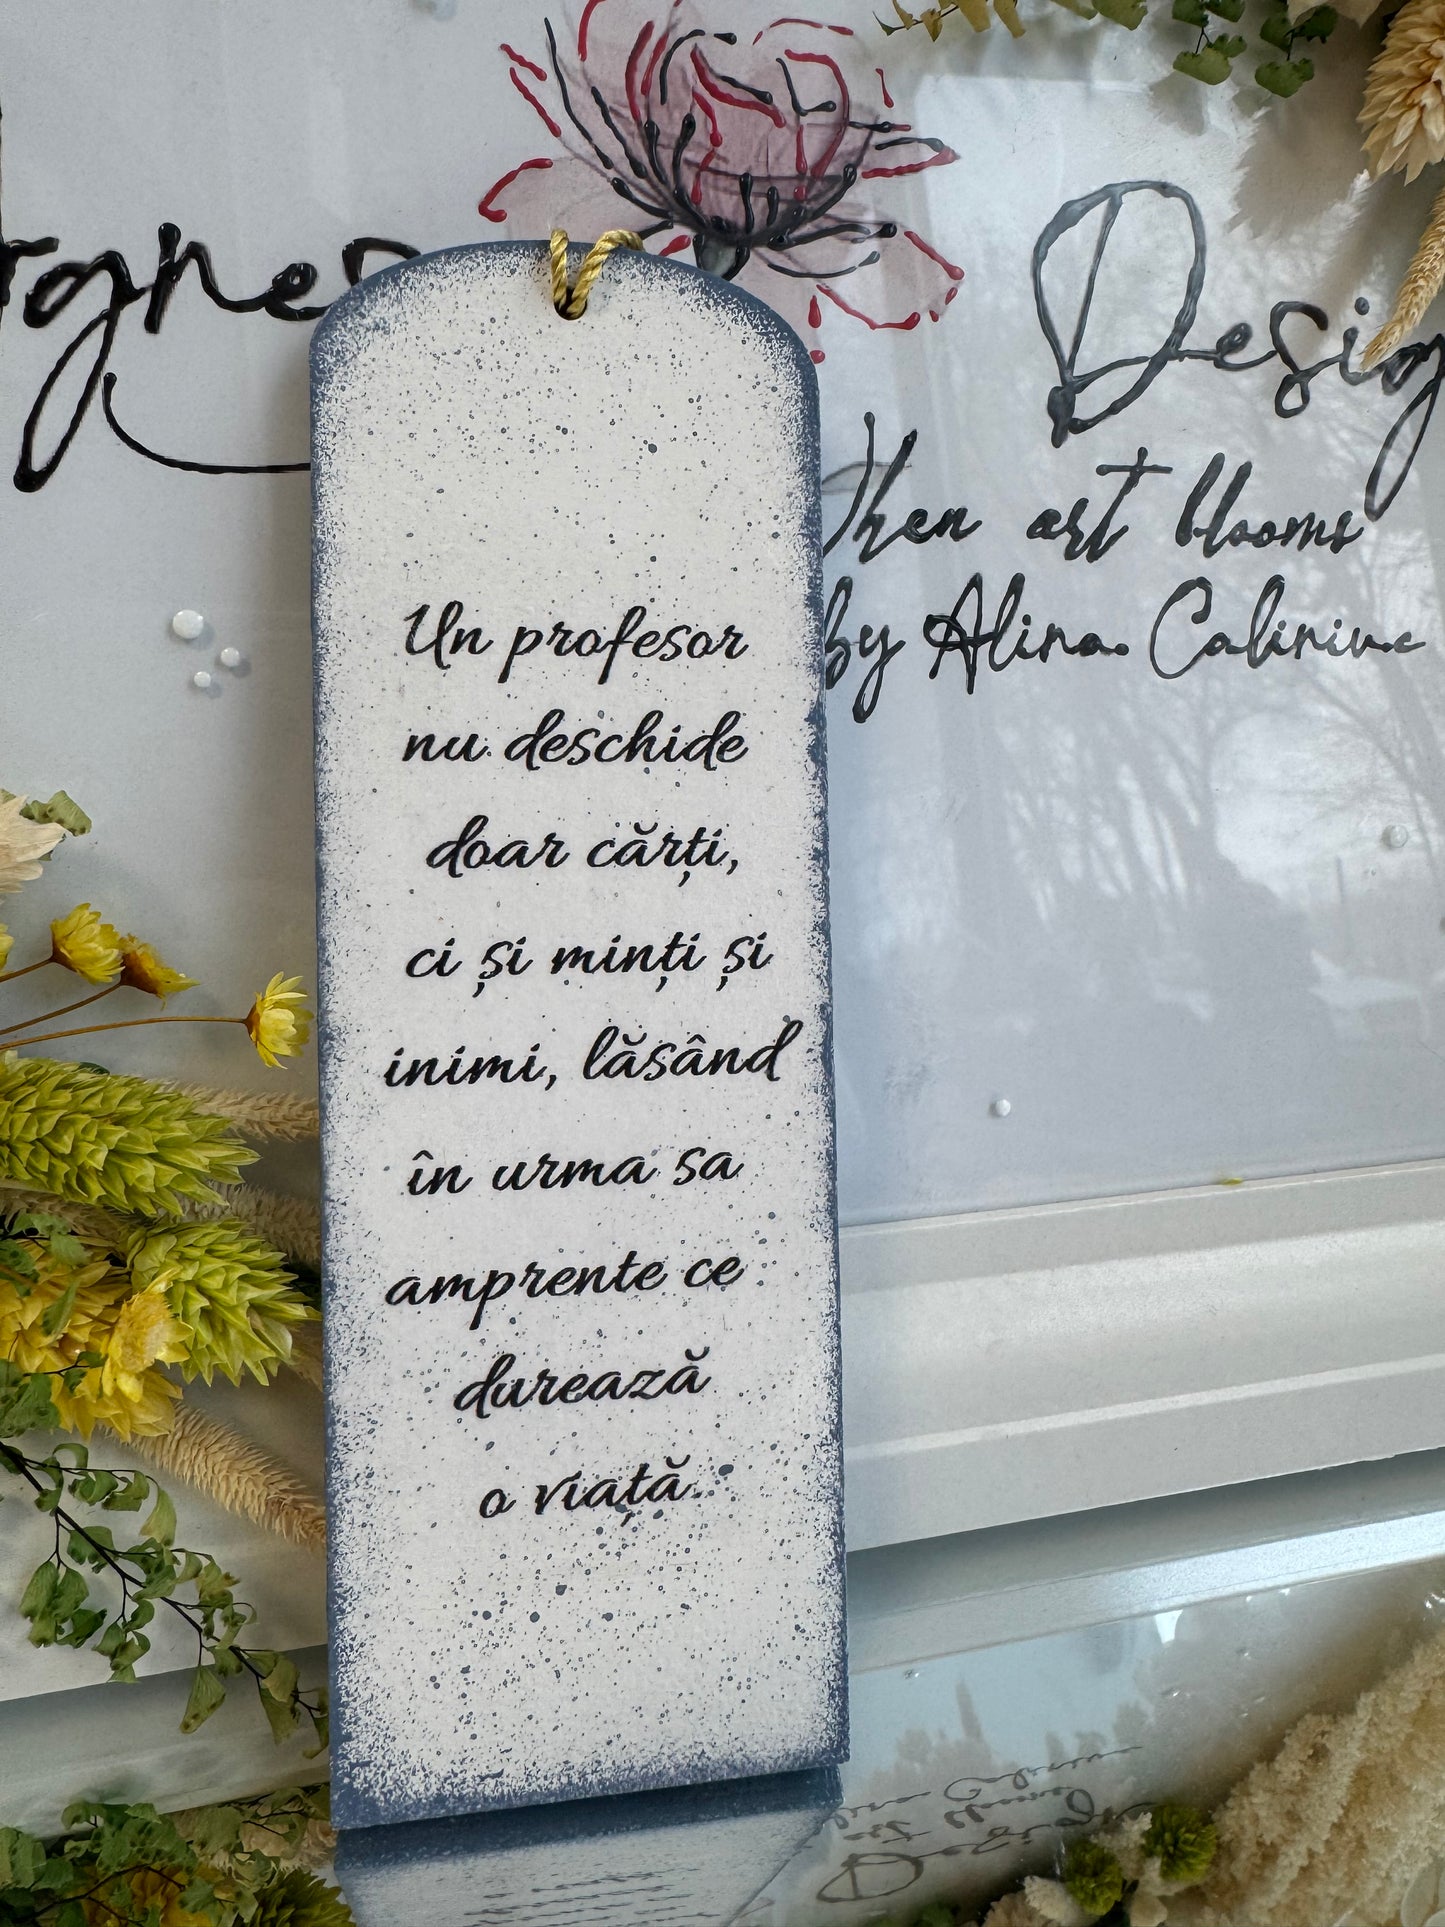 Design
When art blooms
by Alina Caliniuc
Un profesor
nu deschide
doar cărți,
ci și minți și
inimi, lăsând
în urma sa
amprente ce
durează
o viață